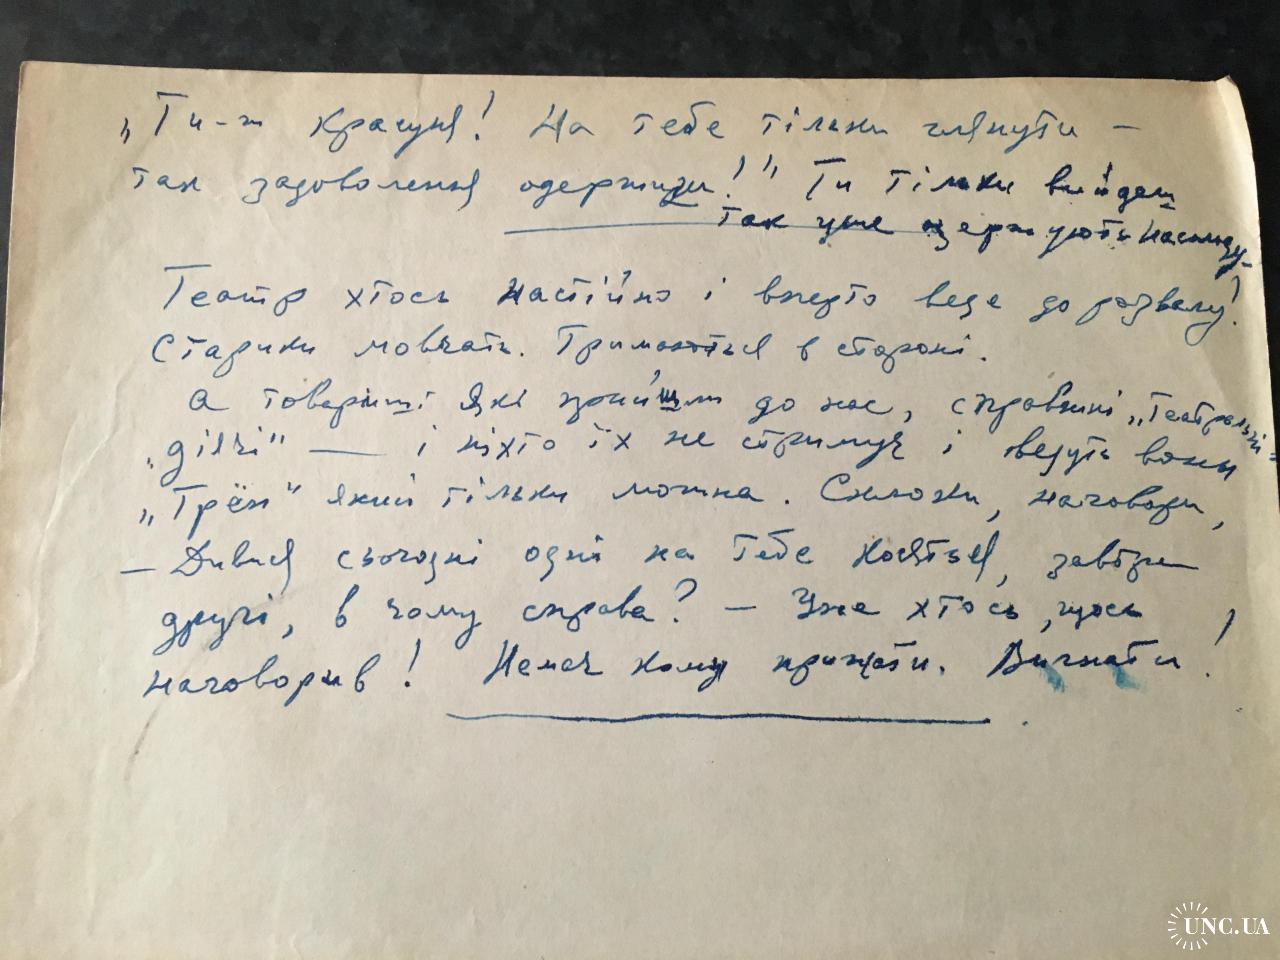 „Ти-ж красуня! На тебе тільки глянути –
так задоволення одержиш!" Ти тільки вийдеш
так уже одержують насолоду.
Театр хтось настійно і вперто веде до розвалу!
Старики мовчать. Тримаються в стороні.
А товариші які прийшли до нас, справжні „Театральні-
„ділчі" — і ніхто їх не стримує і ведуть вони
„Трёп" який тільки можна. Склоки, наговори,
– Дивися сьогодні одні на тебе косяться, завтра
другі, в чому справа? – Уже хтось, щось
наговорив! Немає кому прижати. Вигнати!
UNC.UA